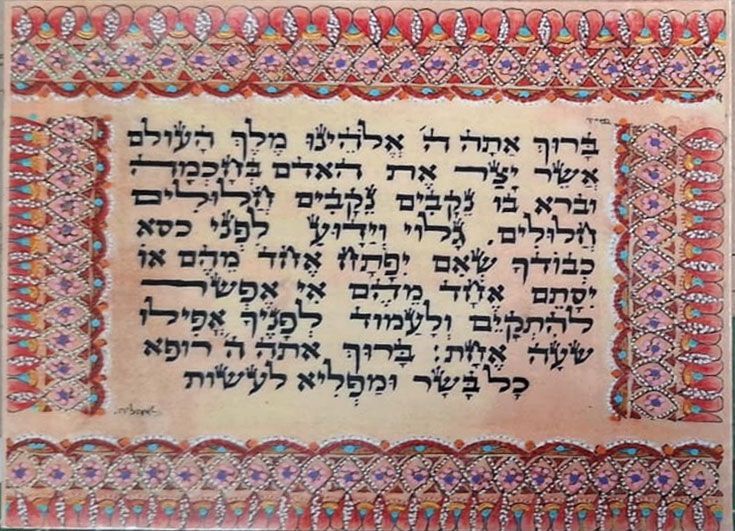 בס״ד
בָּרוּךְ אַתָה ה׳ אֱלֹהֵינוּ מֶלֶךְ הָעוֹלָם
אֲשֶר יָצַר אֶת הָאָדָם בְּחָכְמָה
וּבָרָא בוֹ נְקָבִים נְקָבִים חֲלוּלִים
חֲלוּלִים. גָלוּי וְיָדוּעַ לִפְנֵי כִסֵא
כְבוֹדֶךָ שֶאִם יִפָּתֵחַ אֶחָד מֵהֶם אוֹ
יִסָתֵם אֶחָד מֵהֶם אִי אֶפְשַר
לְהִתְקַיֵם וְלַעֲמוֹד לְפָנֶיךָ אֲפִילוּ
שָעָה אֶחָת: בָּרוּךְ אַתָה ה׳ רוֹפֵא
כָל בָּשָר וּמַפְלִיא לַעֲשוֹת